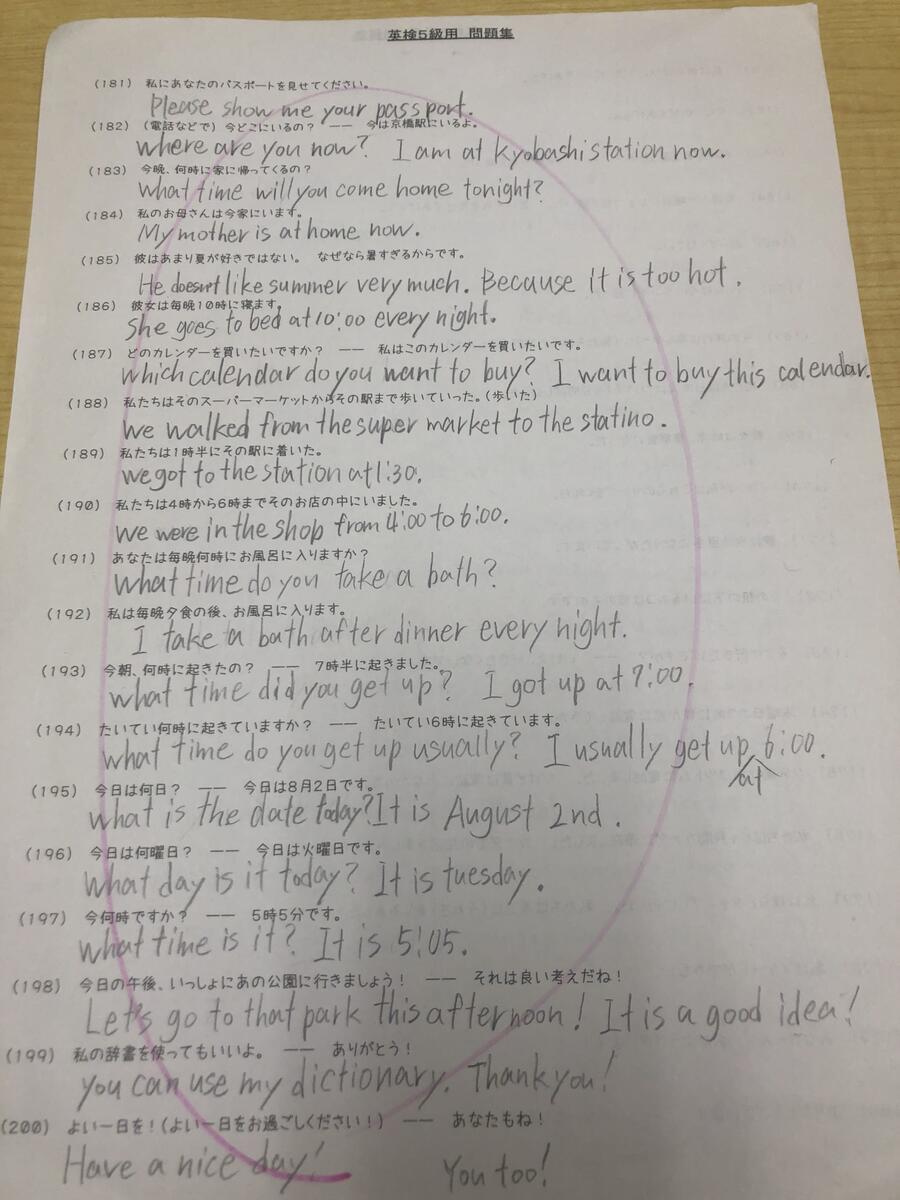 英検5級用 問題集
(181) 私にあなたのパスポートを見せてください。
Please show me your passport.
(182) (電話などで) 今どこにいるの? ―― 今は京橋駅にいるよ。
where are you now? I am at kyobashi station now.
(183) 今晩、何時に家に帰ってくるの?
what time will you come home tonight?
(184) 私のお母さんは今家にいます。
My mother is at home now.
(185) 彼はあまり夏が好きではない。 なぜなら暑すぎるからです。
He doesn't like summer very much. Because it is too hot.
(186) 彼女は毎晩10時に寝ます。
she goes to bed at 10:00 every night.
(187) どのカレンダーを買いたいですか? ―― 私はこのカレンダーを買いたいです。
which calendar do you want to buy? I want to buy this calendar.
(188) 私たちはそのスーパーマーケットからその駅まで歩いていった。(歩いた)
we walked from the super market to the statino.
(189) 私たちは1時半にその駅に着いた。
we got to the station at 1:30.
(190) 私たちは4時から6時までそのお店の中にいました。
we were in the shop from 4:00 to 6:00.
(191) あなたは毎晩何時にお風呂に入りますか?
what time do you take a bath?
(192) 私は毎晩夕食の後、お風呂に入ります。
I take a bath after dinner every night.
(193) 今朝、何時に起きたの? ―― 7時半に起きました。
what time did you get up? I got up at 7:00.
(194) たいてい何時に起きていますか? ―― たいてい6時に起きています。
what time do you get up usually? I usually get up 6:00.
at
(195) 今日は何日? ―― 今日は8月2日です。
what is the date today? It is August 2nd.
(196) 今日は何曜日? ―― 今日は火曜日です。
What day is it today? It is tuesday.
(197) 今何時ですか? ―― 5時5分です。
what time is it? It is 5:05.
(198) 今日の午後、いっしょにあの公園に行きましょう! ―― それは良い考えだね!
Let's go to that park this afternoon! It is a good idea!
(199) 私の辞書を使ってもいいよ。 ―― ありがとう!
you can use my dictionary. Thank you!
(200) よい一日を!(よい一日をお過ごしください!) ―― あなたもね!
Have a nice day! You too!